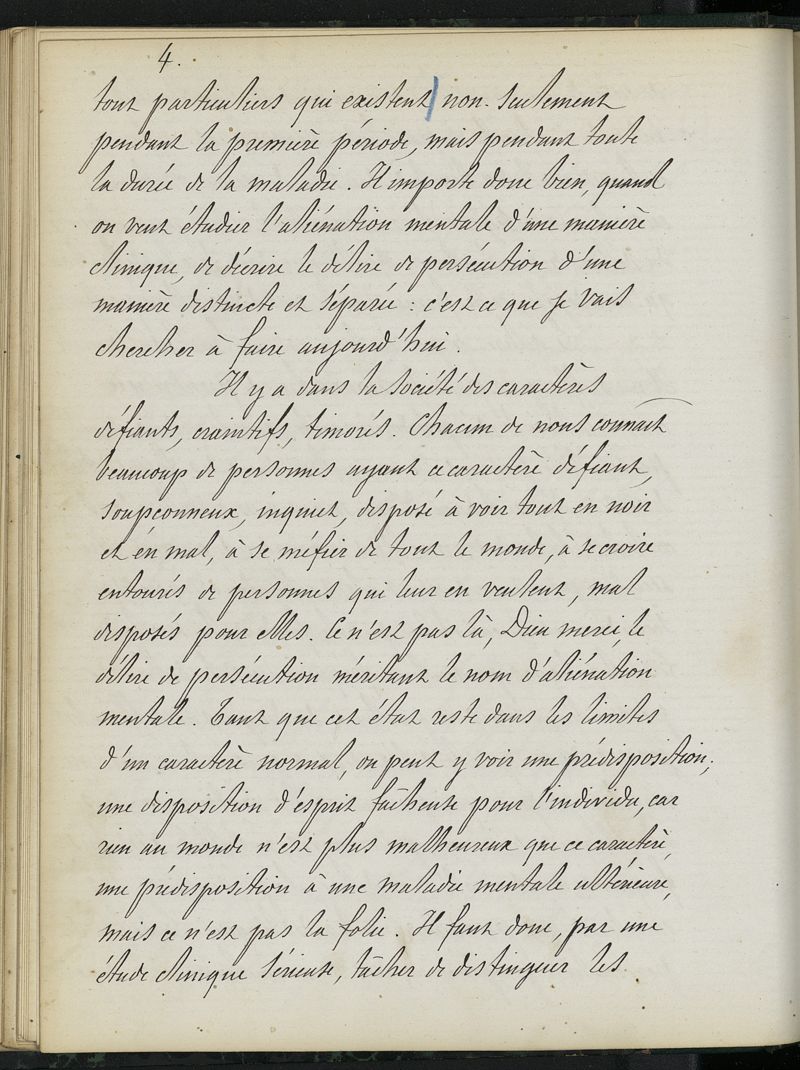 4.
tout particuliers qui existent non-seulement
pendant la première période, mais pendant toute
la durée de la maladie. Il importe donc bien, quand
on veut étudier l'aliénation mentale d'une manière
clinique, de décrire le délire de persécution d'une
manière distincte et séparée : c'est ce que je vais
chercher à faire aujourd'hui.
Il y a dans la société des caractères
défiants, craintifs, timorés. Chacun de nous connaît
beaucoup de personnes ayant ce caractère défiant,
soupçonneux, inquiet, disposé à voir tout en noir
et en mal, à se méfier de tout le monde, à se croire
entourés de personnes qui leur en veulent, mal
disposés pour elles. Ce n'est pas là, Dieu merci, le
délire de persécution méritant le nom d'aliénation
mentale. Tant que cet état reste dans les limites
d'un caractère normal, on peut y voir une prédisposition;
une disposition d'esprit fâcheuse pour l'individu, car
rien au monde n'est plus malheureux que ce caractère,
une prédisposition à une maladie mentale ultérieure,
mais ce n'est pas la folie. Il faut donc, par une
étude clinique sérieuse, tâcher de distinguer les